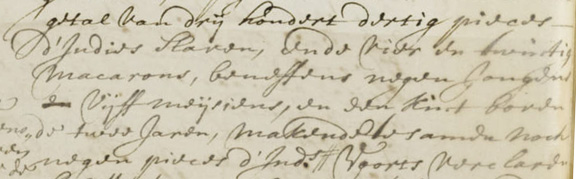 getal van drij hondert dertig pieces
d'Indies slaven, ende vier en twintig
Macarons, beneffens negen Jongens
en Vijff meijsiens, en een kint boven
de twee Jaren, makende te samen noch
negen pieces d'Inds. Voorts verclaren